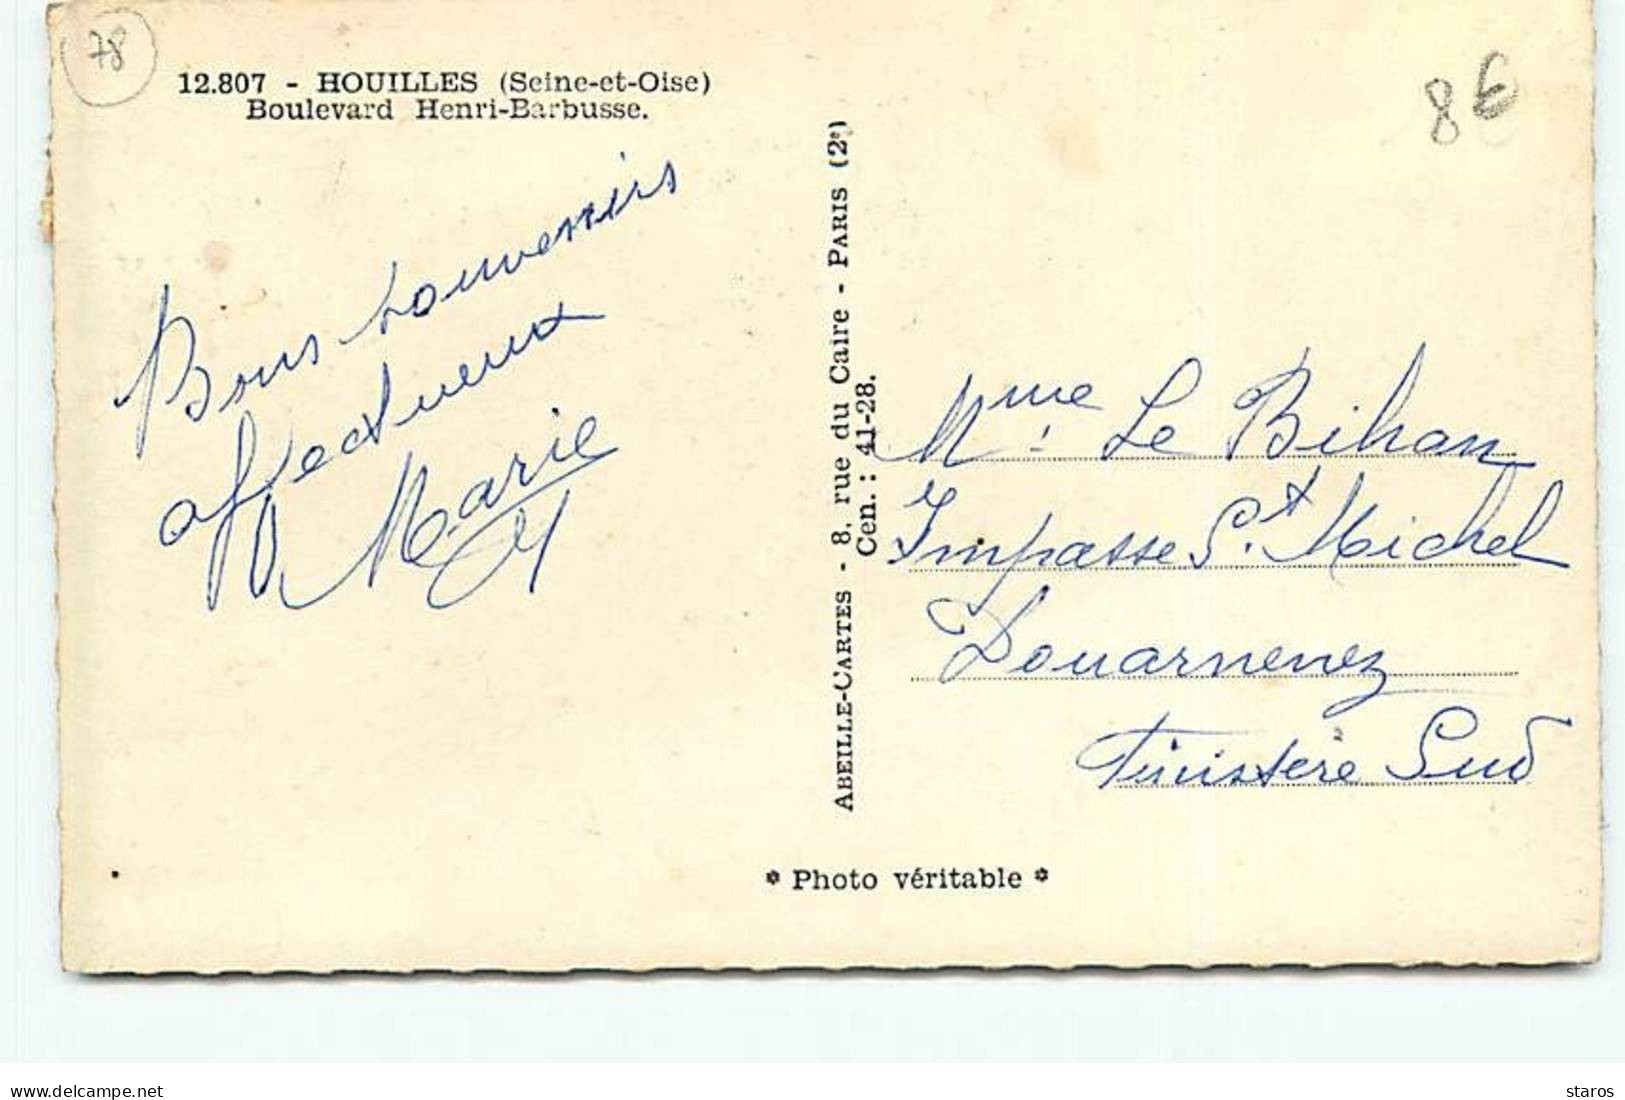 78
12.807 - HOUILLES (Seine-et-Oise)
Boulevard Henri-Barbusse.
8€
Bons souvenirs
affectueux
Marie
ABEILLE-CARTES - 8, rue du Caire - PARIS (2e)
Cen. : 41-28.
Mme Le Bihan
Impasse St Michel
Douarnenez
Finistère Sud
* Photo véritable *
www.delcampe.net
staros